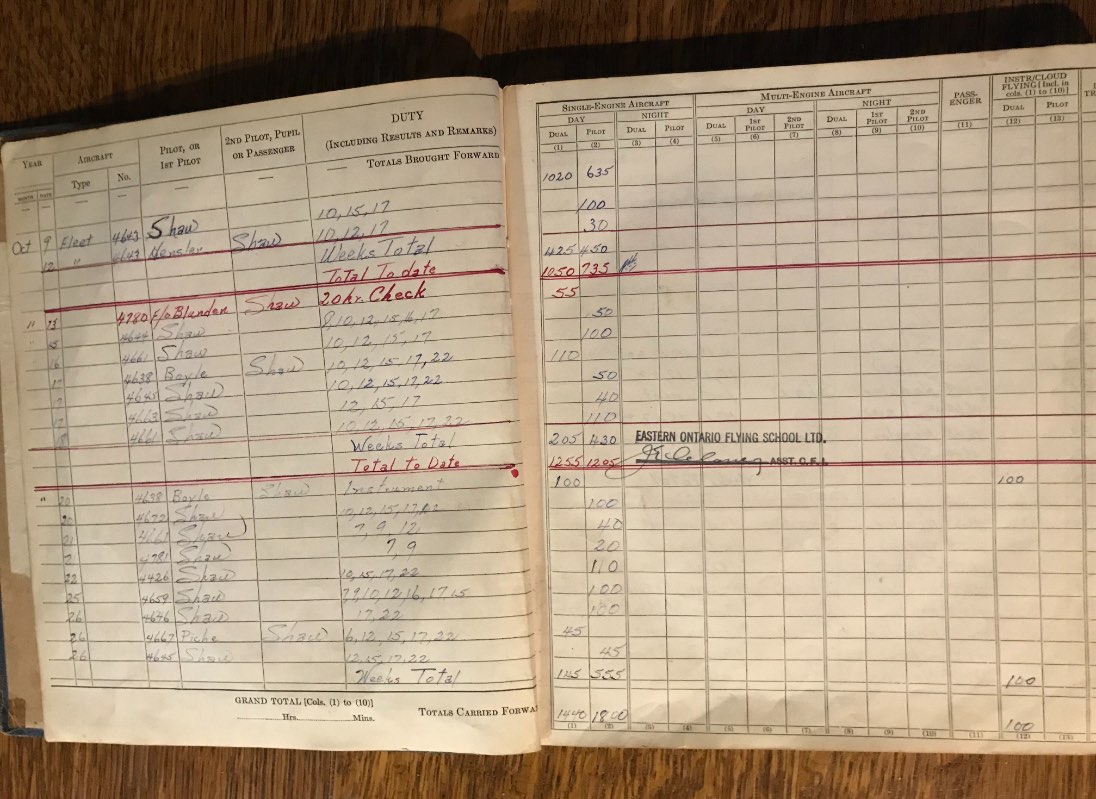 YEAR AIRCRAFT PILOT, OR 1ST PILOT 2ND PILOT, PUPIL OR PASSENGER DUTY (INCLUDING RESULTS AND REMARKS)
MONTH DATE Type No. TOTALS BROUGHT FORWARD
10, 15, 17
Oct 9 Fleet 4643 Shaw 10, 12, 17
12 " 4643 Shaw Weeks Total
Total To date
" 13 4780 F/o Blunden Shaw 20 hr. Check
15 4644 Shaw 8, 10, 12, 15, 16, 17
4661 Shaw 10, 12, 15, 17
16 4638 Boyle Shaw 10, 12, 15, 17, 22
17 4645 Shaw 10, 12, 15, 17, 22
4663 Shaw 12, 15, 17
4661 Shaw 10, 12, 15, 17, 22
Weeks Total
Total to Date
" 20 4638 Boyle Shaw Instrument
20 4672 Shaw 10, 12, 15, 17, 22
21 4661 Shaw 7, 9, 12
21 4781 Shaw 7, 9
22 4426 Shaw 10, 15, 17, 22
25 4659 Shaw 7, 9, 10, 12, 16, 17, 15
26 4646 Shaw 17, 22
26 4667 Piche Shaw 6, 12, 15, 17, 22
26 4645 Shaw 12, 15, 17, 22
Weeks Total
GRAND TOTAL [Cols. (1) to (10)]
Hrs. Mins. TOTALS CARRIED FORWA
SINGLE-ENGINE AIRCRAFT MULTI-ENGINE AIRCRAFT PASSENGER INSTR/CLOUD FLYING [Incl. in cols. (1) to (10)]
DAY NIGHT DAY NIGHT
DUAL PILOT DUAL PILOT DUAL 1ST PILOT 2ND PILOT DUAL 1ST PILOT 2ND PILOT DUAL PILOT
(1) (2) (3) (4) (5) (6) (7) (8) (9) (10) (11) (12) (13)
1020 635
100
30
425 450
1050 735
55
50
100
110
50
40
110
205 430 EASTERN ONTARIO FLYING SCHOOL LTD.
1255 1205 ASST. C.F.I.
100 100
100
40
20
110
100
100
45
45
145 555 100
1440 1800 100
(1) (2) (3) (4) (5) (6) (7) (8) (9) (10) (11) (12) (13)